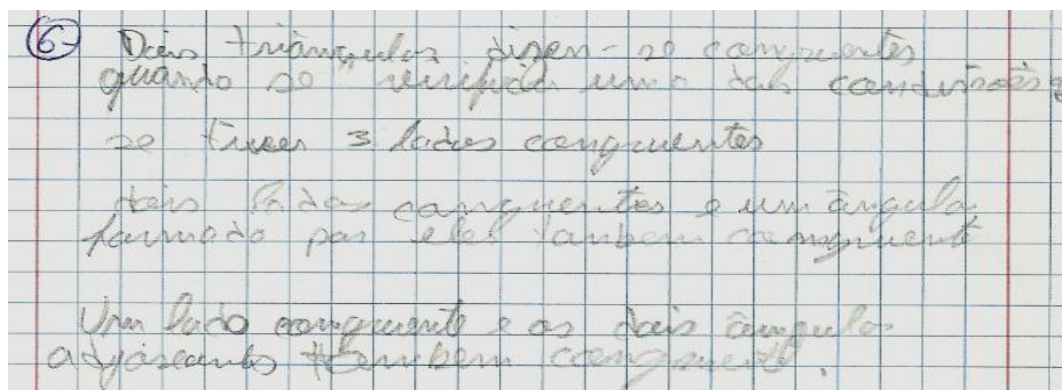 6- Dois triângulos dizen-se congruentes
quando se verifica uma das condissões
se tiver 3 lados congruentes
dois lados congruentes e um ângulo
formado por eles tanbem congruente
Um lado congruente e os dois ângulos
tembem congruente.